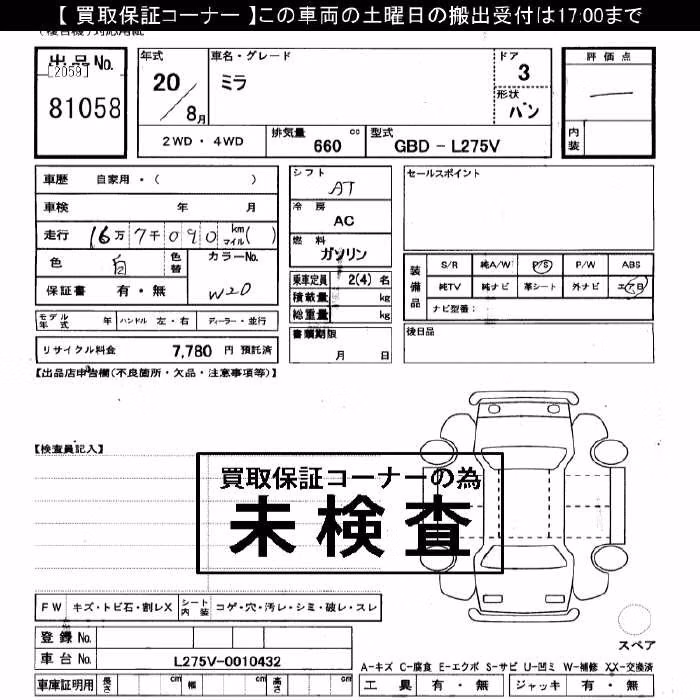 【 買取保証コーナー 】この車両の土曜日の搬出受付は17:00まで
出品No.
[2059]
81058
年式
20
8月
車名・グレード
ミラ
ドア
3
形状
バン
評価点
内装
2WD ・ 4WD
排気量
660 cc
型式
GBD - L275V
車歴 自家用・( )
車検 年 月
走行 16万 7千 090 km マイル( )
色 白 色替
カラーNo.
W20
保証書 有・無
モデル年式 年 ハンドル 左・右 ディーラー・並行
リサイクル料金 7,780 円 預託済
シフト
AT
冷房
AC
燃料
ガソリン
乗車定員 2(4) 名
積載量 kg
総重量 kg
書類期限
月 日
セールスポイント
装備品
S/R 純A/W P/S P/W ABS
純TV 純ナビ 革シート 外ナビ エアB
ナビ型番:
後日品
【出品店申告欄(不良箇所・欠品・注意事項等)】
【検査員記入】
買取保証コーナーの為
未検査
FW キズ・トビ石・割レX
シート内装 コゲ・穴・汚レ・シミ・破レ・スレ
登録No.
車台No. L275V-0010432
車庫証明用 長さ cm 幅 cm 高さ cm
スペア
A-キズ C-腐食 E-エクボ S-サビ U-凹ミ W-補修 XX-交換済
工具 有・無 ジャッキ 有・無